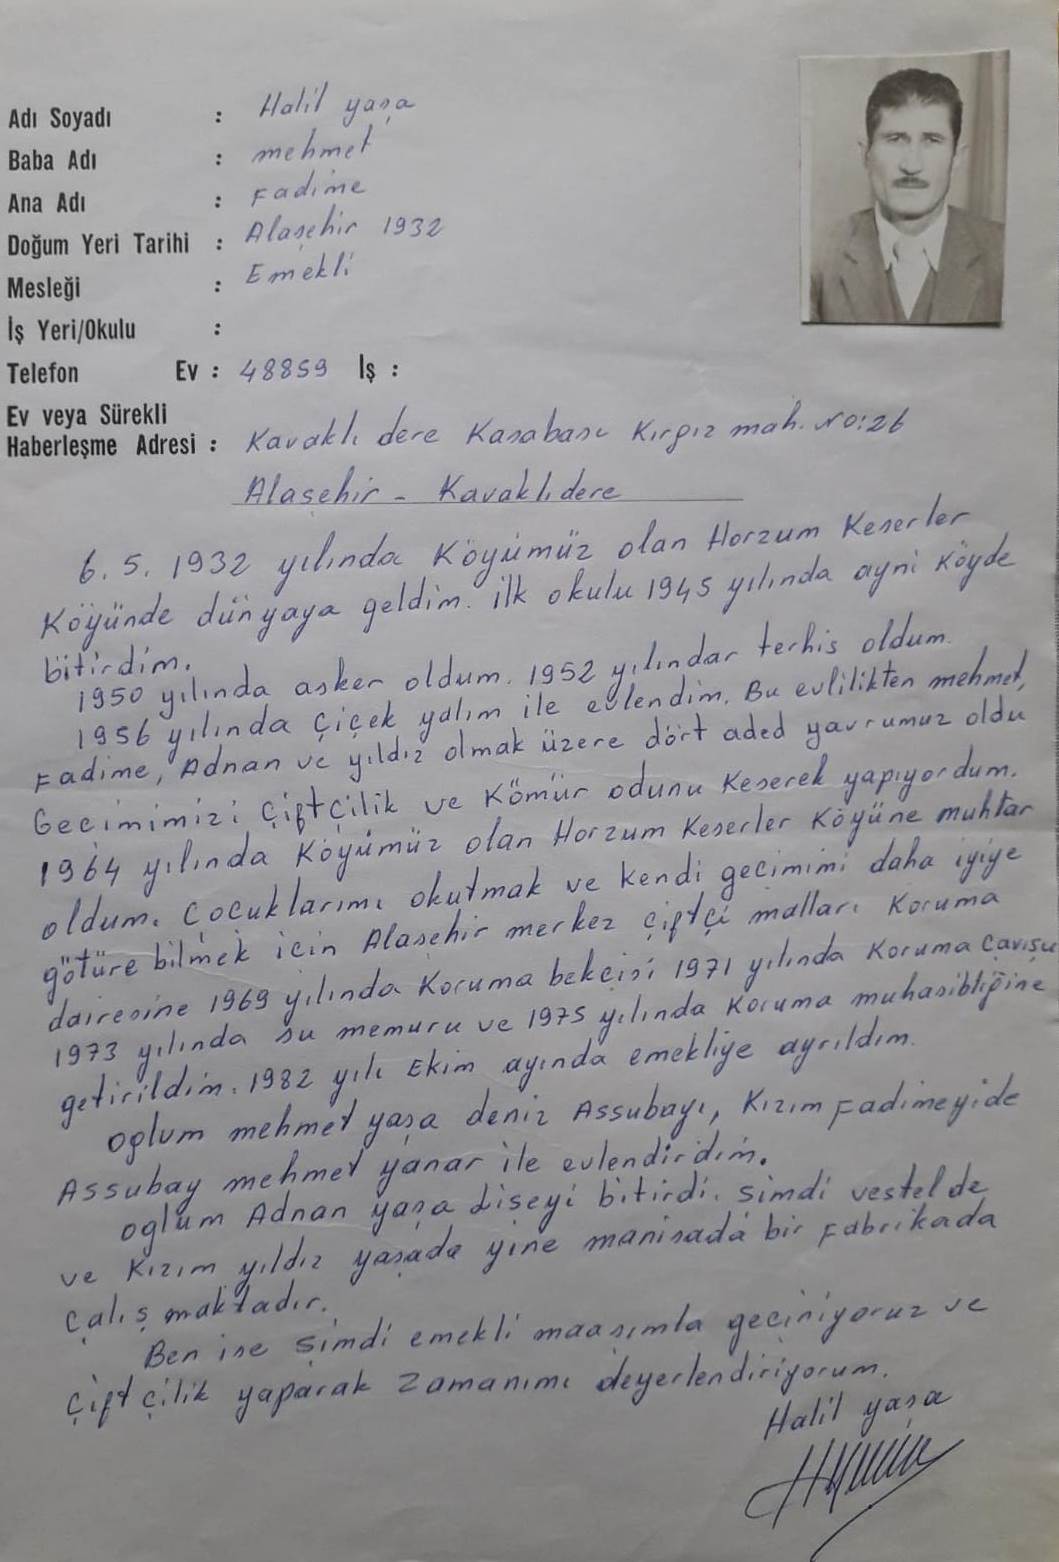 Adı Soyadı : Halil yaşa
Baba Adı : mehmet
Ana Adı : Fadime
Doğum Yeri Tarihi : Alaşehir 1932
Mesleği : Emekli
İş Yeri/Okulu :
Telefon Ev : 48859 İş :
Ev veya Sürekli
Haberleşme Adresi : Kavaklı dere Kasabası Kırgız mah. No:26
Alaşehir - Kavaklıdere
6.5.1932 yılında Köyümüz olan Horzum Keserler
Köyünde dünyaya geldim. ilk okulu 1945 yılında ayni Köyde
bitirdim.
1950 yılında asker oldum. 1952 yılındar terhis oldum.
1956 yılında Çiçek yalım ile evlendim. Bu evlilikten mehmet,
Fadime, Adnan ve yıldız olmak üzere dört aded yavrumuz oldu
Gecimimizi Çiftçilik ve Kömür odunu Keserek yapıyordum.
1964 yılında Köyümüz olan Horzum Keserler Köyüne muhtar
oldum. Çocuklarımı okutmak ve kendi gecimimi daha iyiye
götüre bilmek icin Alaşehir merkez çiftçi malları Koruma
dairesine 1969 yılında Koruma bekcisi 1971 yılında Koruma Cavuşu
1973 yılında su memuru ve 1975 yılında Koruma muhasibliğine
getirildim. 1982 yılı Ekim ayında emekliye ayrıldım.
oğlum mehmet yaşa deniz Assubayı, Kızım Fadimeyide
Assubay mehmet yanar ile evlendirdim.
oğlum Adnan yaşa Liseyi bitirdi. Simdi vestelde
ve Kızım yıldız yaşada yine manisada bir Fabrikada
çalışmaktadır.
Ben ise Şimdi emekli maaşımla geçiniyoruz ve
Çiftçilik yaparak zamanımı deyerlendiriyorum.
Halil yaşa